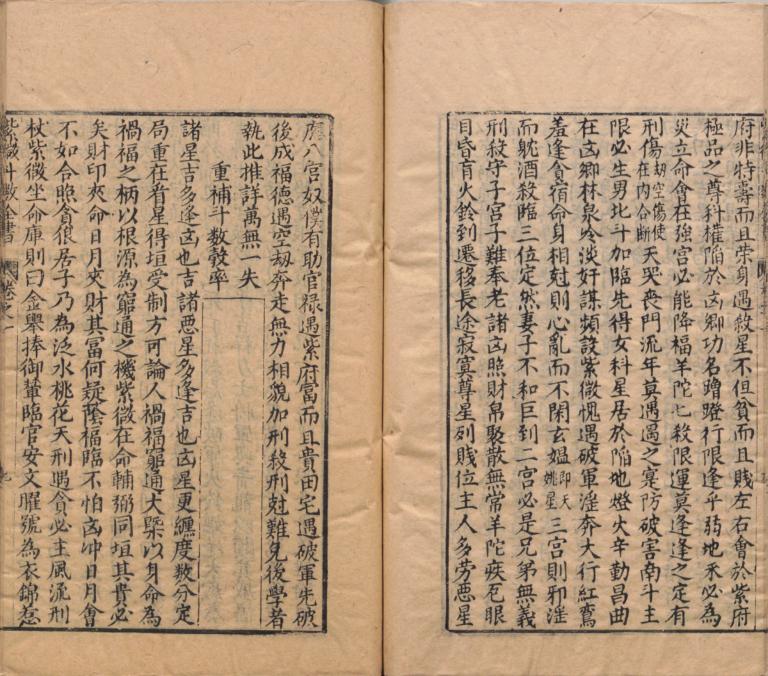 府非特壽而且榮身遇殺星不但貧而且賤左右會於紫府
極品之尊科權陷於凶鄉功名蹭蹬行限逢乎弱地未必為
災立命會在強宮必能降福羊陀七殺限運莫逢逢之定有
刑傷劫空傷使在內合斷天哭喪門流年莫遇遇之實防破害南斗主
限必生男北斗加臨先得女科星居於陷地燈火辛勤昌曲
在凶鄉林泉冷淡奸謀頻設紫微愧遇破軍淫奔大行紅鸞
羞逢貪宿命身相尅則心亂而不閑玄媼即天姚星三宮則邪淫
而耽酒殺臨三位定然妻子不和巨到二宮必是兄弟無義
刑殺守子宮子難奉老諸凶照財帛聚散無常羊陀疾厄眼
目昏盲火鈴到遷移長途寂寞尊星列賤位主人多勞惡星
應八宮奴僕有助官祿遇紫府富而且貴田宅遇破軍先破
後成福德遇空劫奔走無力相貌加刑殺刑尅難免後學者
執此推詳萬無一失
重補斗數彀率
諸星吉多逢凶也吉諸惡星多逢吉也凶星更纏度數分定
局重在看星得垣受制方可論人禍福窮通大槩以身命為
禍福之柄以根源為窮通之機紫微在命輔弼同垣其貴必
矣財印夾命日月夾財其富何疑蔭福臨不怕凶冲日月會
不如合照貪狼居子乃為泛水桃花天刑遇貪必主風流刑
杖紫微坐命庫則曰金轝捧御輦臨官安文曜號為衣錦惹
紫微斗數全書 卷之一 九